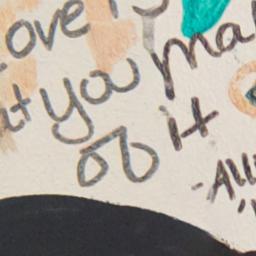 ove is
at you ma
of it
- All